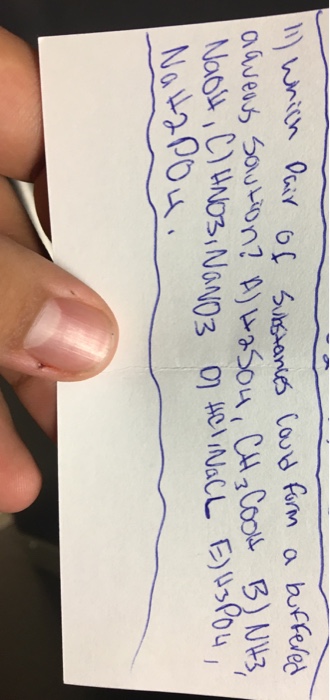 11) Which Pair of Substances Could form a buffered
aqueous Solution? A) H2SO4, CH3COOH B) NH3,
NaOH, C) HNO3, NaNO3 D) HCl, NaCL E) H3PO4,
NaH2PO4.